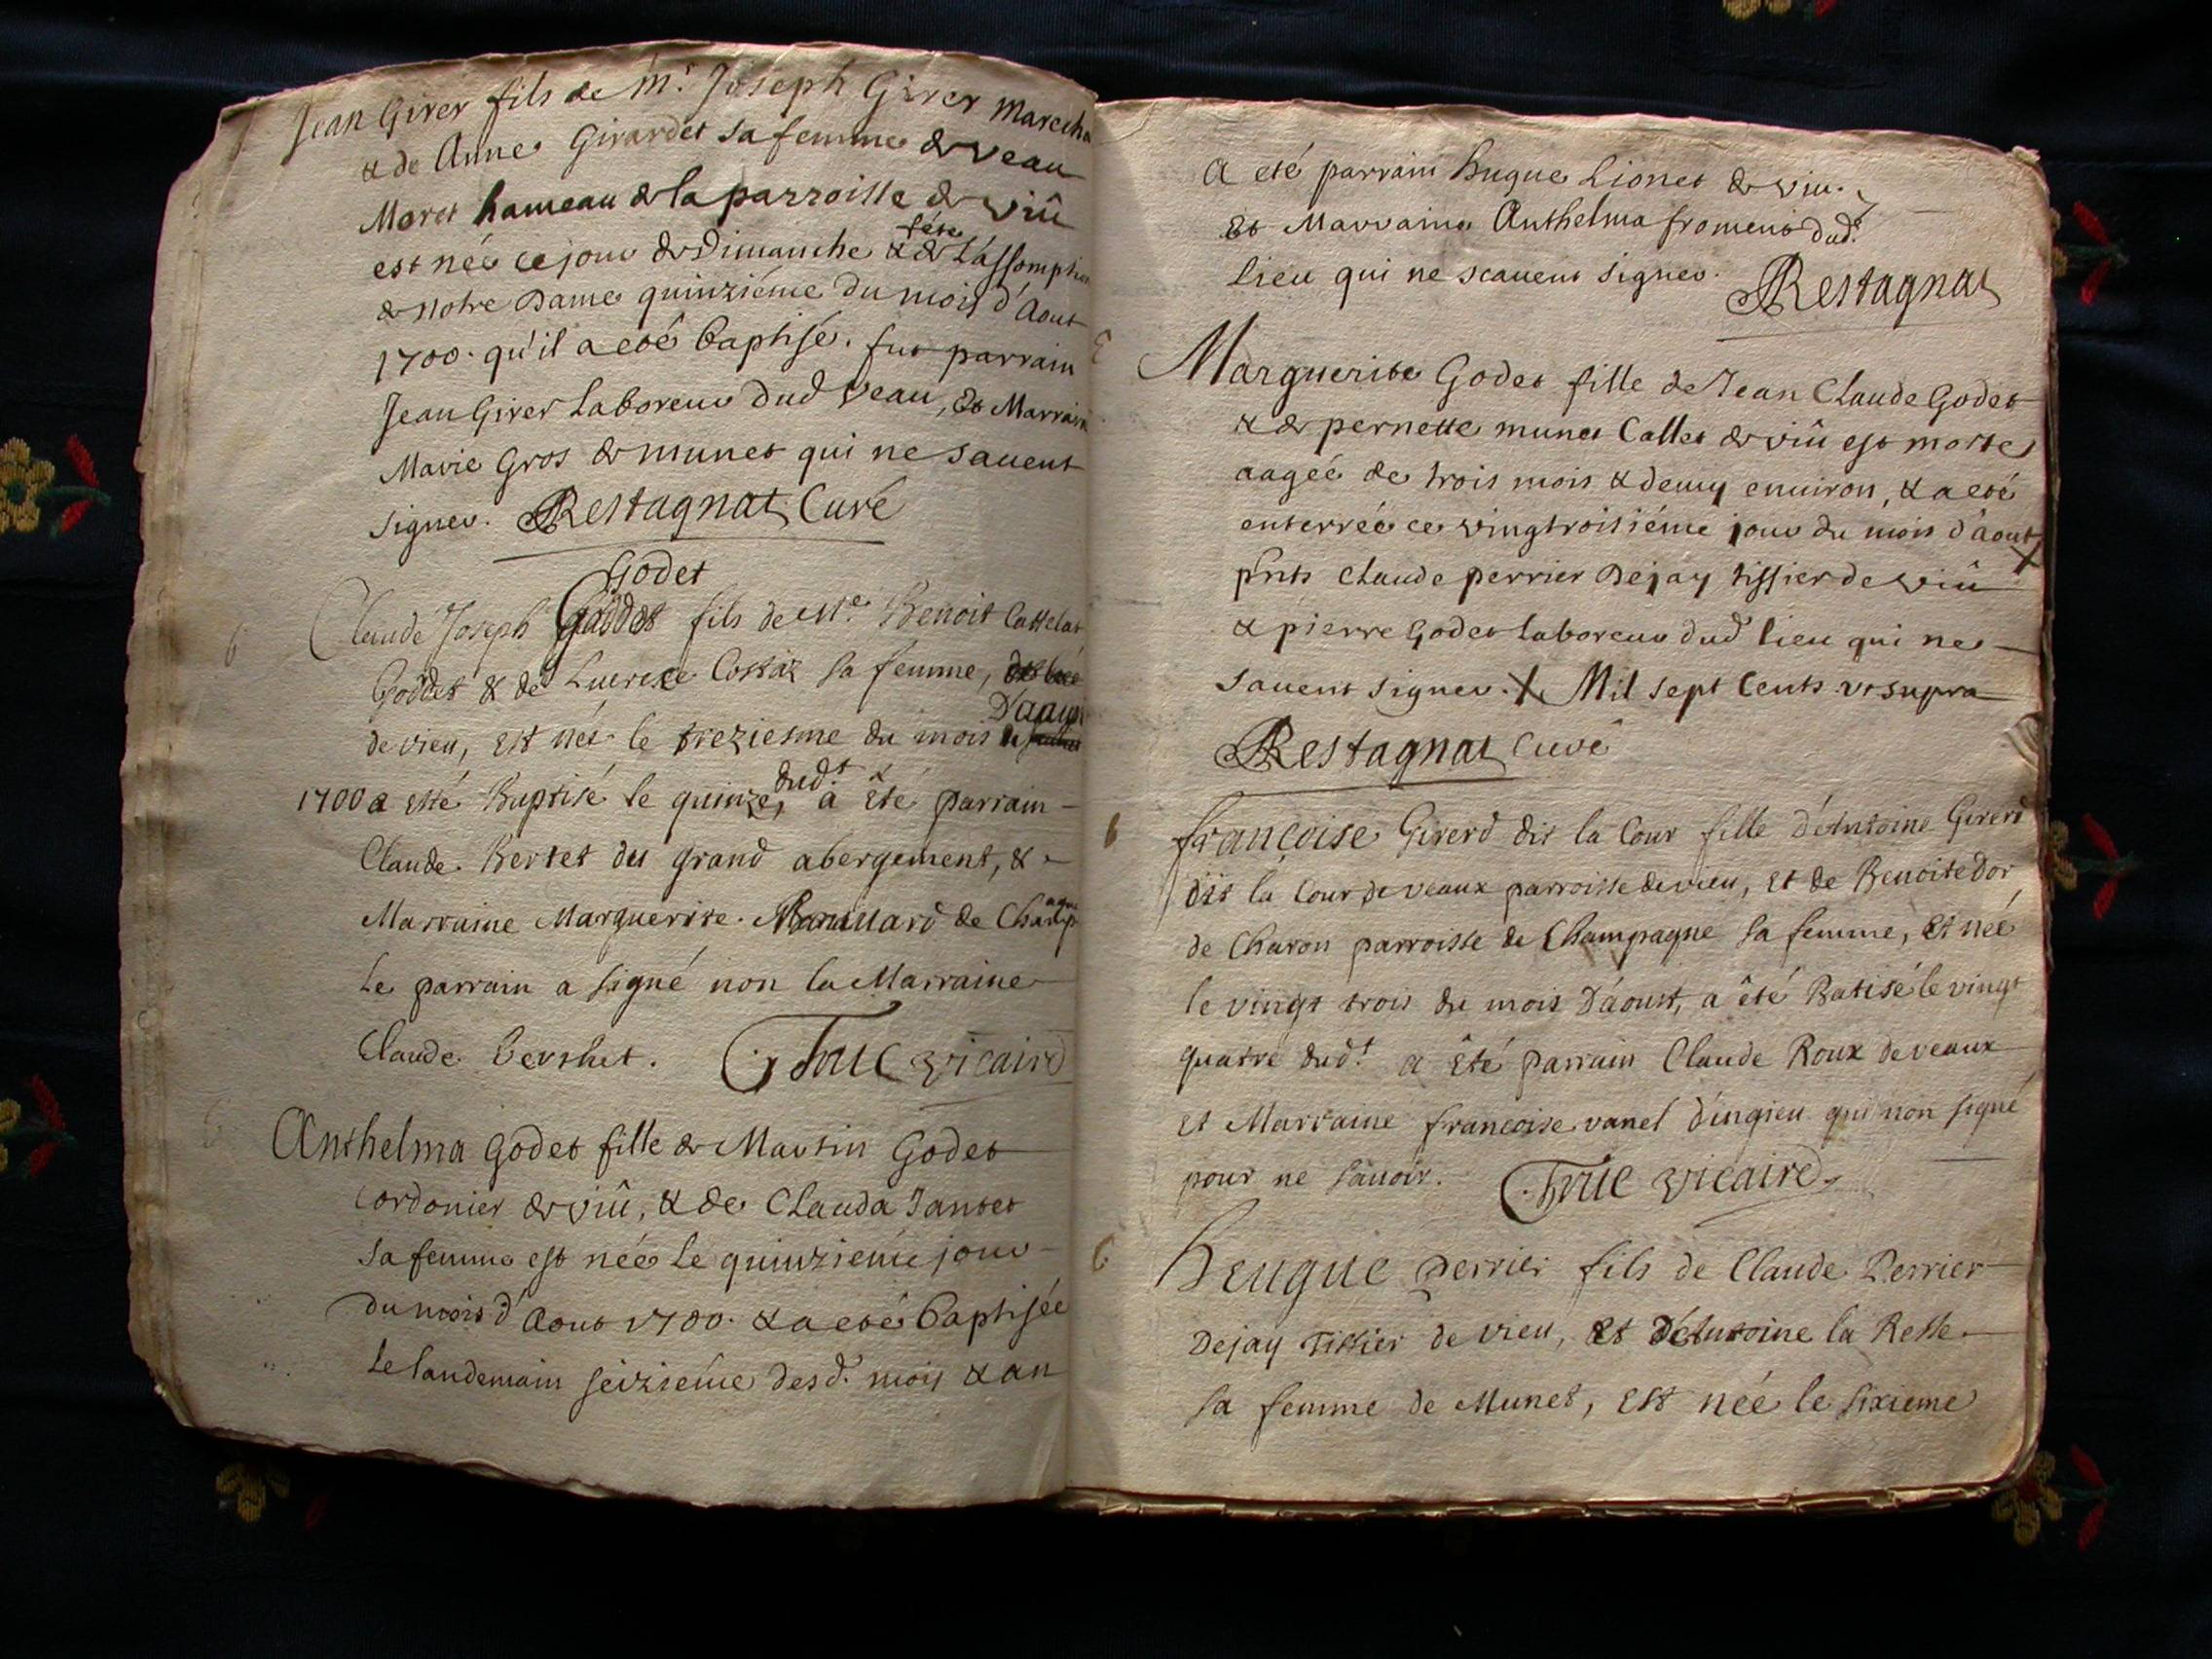 Jean Girer fils de Mr. Joseph Girer Marecha
& de Anne Girardet sa femme de Veau
Moret hameau de la parroisse de Viû
est née ce jour de Dimanche & de fête L'assomption
de Notre Dame quinziéme du mois d'Aout
1700. qu'il a eté Baptisé. fut parrain
Jean Girer Laboreur dud Veau, Et Marraine
Marie Gros de munet qui ne savent
signer. Restagnat Curé
Godet
Claude Joseph fils de Me. Benoit Cattelat
Goddet & de Lucrece Costaz sa femme,
de vieu, est née le treziesme du mois D'aoust
1700 a esté Baptisé le quinze, dudt. & a êté parrain
Claude Bertet du grand abergement, &
Marraine Marguerite de Champagne
Le parrain a signé non la Marraine
Claude bershet. Truc vicaire
Anthelma Godet fille de Martin Godet
cordonier de viû, & de Clauda Jantet
sa femme est née Le quinzieme jour
du mois d'Aout 1700. & a eté Baptisée
Le landemain seizieme desd. mois & an
A eté parrain hugue Lionet de viu.
Et Marraine Anthelma froment dud.
lieu qui ne scavent signer. Restagnat
Marguerite Godet fille de Jean Claude Godet
& de pernette munet Callet de viû est morte
aagée de trois mois & demy environ, & a eté
enterrée ce vingtroisiéme jour du mois d'aout X
pnts Claude perrier Dejay tissier de viû
& pierre Godet laboreur dud lieu qui ne
savent signer. X Mil sept Cents vt supra
Restagnat Curé
françoise Girerd dit la Cour fille d'Antoine Girerd
dit la Cour de veaux parroisse de vieu, et de Benoite Dor
de Charon parroisse de Champagne sa femme, et née
le vingt trois du mois D'aoust, a êté Batisé le vingt
quatre dudt. a êté parrain Claude Roux de veaux
et Marraine francoise vanel d'ingieu qui non signé
pour ne savoir. Truc vicaire
heugue perrier fils de Claude Perrier
Dejay Tissier de vieu, et d'Antoine la Resse
sa femme de Munet, est née le sixieme